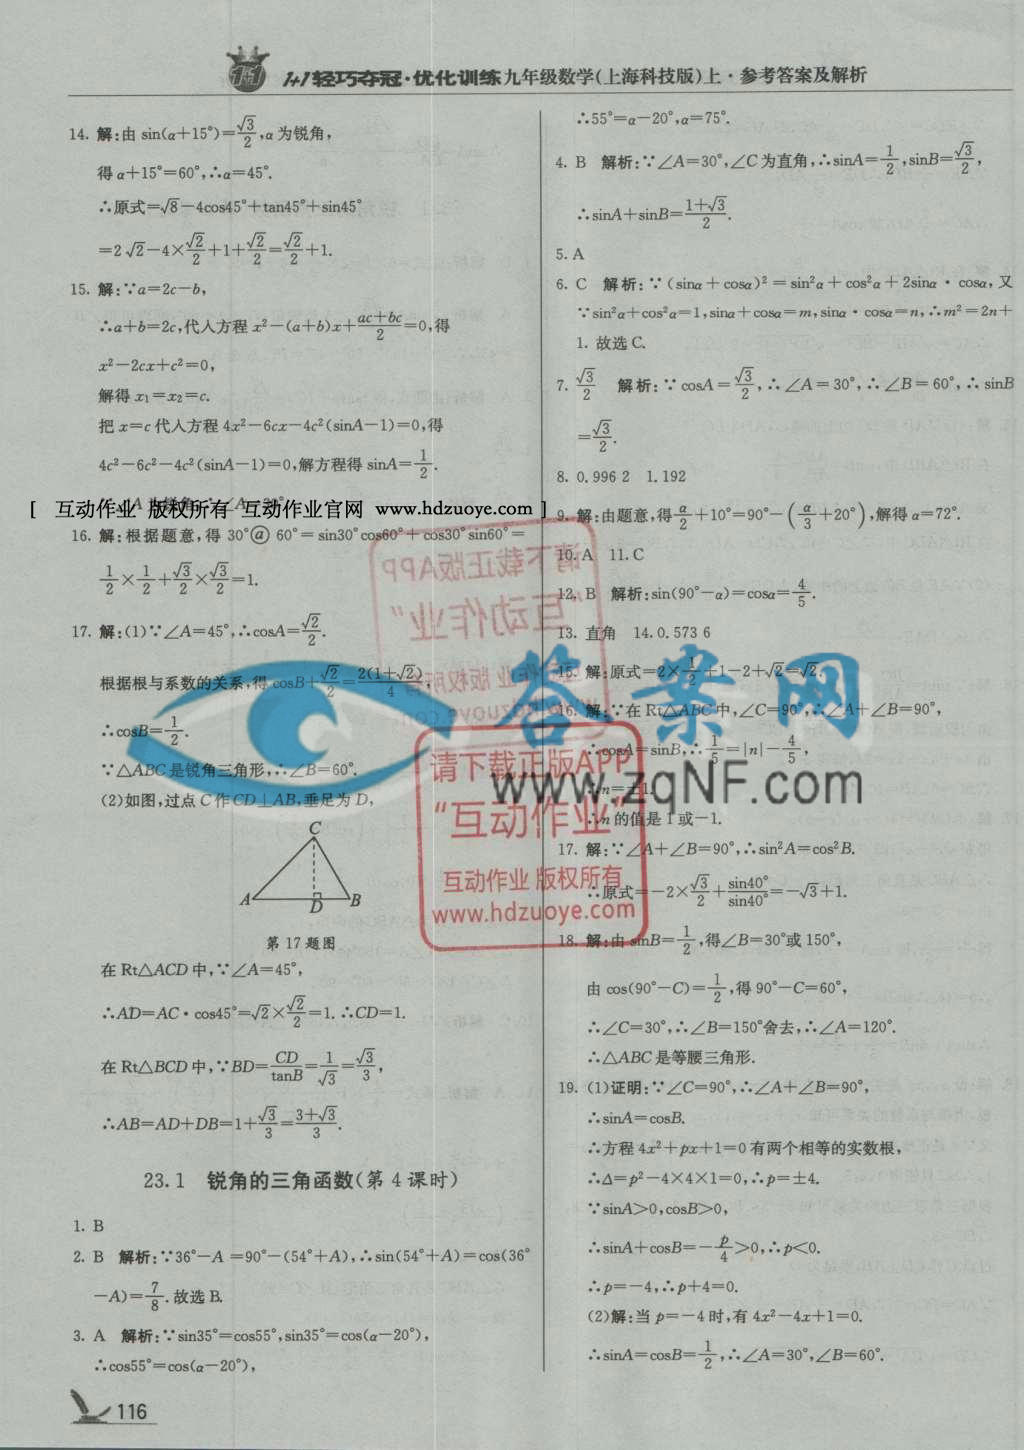 1+1轻巧夺冠·优化训练九年级数学(上海科技版)上·参考答案及解析
14. 解:由 sin(α+15°)=√3/2,α为锐角,
得 α+15°=60°,∴α=45°.
∴原式=√8-4cos45°+tan45°+sin45°
=2√2-4×√2/2+1+√2/2=√2/2+1.
15. 解:∵a=2c-b,
∴a+b=2c,代入方程 x²-(a+b)x+(ac+bc)/2=0,得
x²-2cx+c²=0,
解得 x₁=x₂=c.
把 x=c 代入方程 4x²-6cx-4c²(sinA-1)=0,得
4c²-6c²-4c²(sinA-1)=0,解方程得 sinA=1/2.
[ 互动作业 版权所有 互动作业官网 www.hdzuoye.com ]
16. 解:根据题意,得 30°ⓐ60°=sin30°cos60°+cos30°sin60°=
1/2×1/2+√3/2×√3/2=1.
17. 解:(1)∵∠A=45°,∴cosA=√2/2.
根据根与系数的关系,得 cosB+√2/2=2(1+√2)/4,
∴cosB=1/2.
∵△ABC是锐角三角形,∴∠B=60°.
(2)如图,过点 C 作CD⊥AB,垂足为 D,
C
A D B
第 17 题图
在 Rt△ACD 中,∵∠A=45°,
∴AD=AC·cos45°=√2×√2/2=1.∴CD=1.
在 Rt△BCD 中,∵BD=CD/tanB=1/√3=√3/3,
∴AB=AD+DB=1+√3/3=(3+√3)/3.
23.1 锐角的三角函数(第 4 课时)
1. B
2. B 解析:∵36°-A=90°-(54°+A),∴sin(54°+A)=cos(36°
-A)=7/8.故选 B.
3. A 解析:∵sin35°=cos55°,sin35°=cos(α-20°),
∴cos55°=cos(α-20°),
116
∴55°=α-20°,α=75°.
4. B 解析:∵∠A=30°,∠C为直角,∴sinA=1/2,sinB=√3/2,
∴sinA+sinB=(1+√3)/2.
5. A
6. C 解析:∵(sinα+cosα)²=sin²α+cos²α+2sinα·cosα,又
∵sin²α+cos²α=1,sinα+cosα=m,sinα·cosα=n,∴m²=2n+
1. 故选C.
7. √3/2 解析:∵cosA=√3/2,∴∠A=30°,∴∠B=60°,∴sinB
=√3/2.
8. 0.996 2 1.192
9. 解:由题意,得α/2+10°=90°-(α/3+20°),解得 α=72°.
10. A 11. C
12. B 解析:sin(90°-α)=cosα=4/5.
13. 直角 14. 0.573 6
15. 解:原式=2×1/2+1-2+√2=√2.
16. 解:∵在 Rt△ABC中,∠C=90°,∴∠A+∠B=90°,
∴cosA=sinB,∴1/5=|n|-4/5,
∴n=±1.
∴n 的值是 1 或-1.
17. 解:∵∠A+∠B=90°,∴sin²A=cos²B.
∴原式=-2×√3/2+sin40°/sin40°=-√3+1.
18. 解:由sinB=1/2,得∠B=30°或 150°,
由 cos(90°-C)=1/2,得 90°-C=60°,
∴∠C=30°,∴∠B=150°舍去,∴∠A=120°.
∴△ABC 是等腰三角形.
19. (1)证明:∵∠C=90°,∴∠A+∠B=90°,
∴sinA=cosB.
∴方程 4x²+px+1=0 有两个相等的实数根,
∴Δ=p²-4×4×1=0,∴p=±4.
∵sinA>0,cosB>0,
∴sinA+cosB=-p/4>0,∴p<0.
∴p=-4,∴p+4=0.
(2)解:当 p=-4 时,有 4x²-4x+1=0.
∴sinA=cosB=1/2,∴∠A=30°,∠B=60°.
答案网
www.zqNF.com
请下载正版APP
“互动作业”
互动作业 版权所有
www.hdzuoye.com